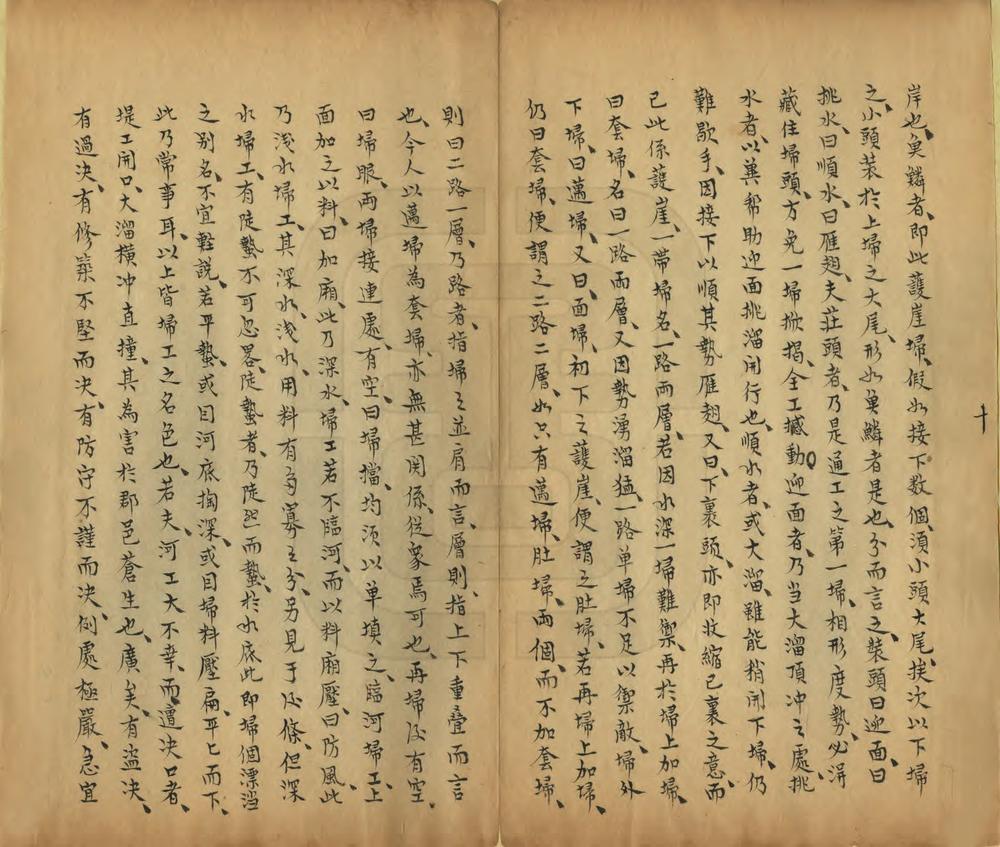 十
岸也、魚鱗者、即此護崖埽、假如接下数個、湏小頭大尾、挨次以下埽
之、小頭裝於上埽之大尾、形如魚鱗者是也、分而言之、裝頭曰迎面、曰
挑水、曰順水、曰雁翅、夫莊頭者、乃是通工之第一埽、相形度勢、必淂
藏住埽頭、方免一埽掀揭、全工撼動、迎面者、乃当大溜頂冲之處、挑
水者、以兾帮助迎面挑溜開行也、順水者、或大溜、雖能稍開下埽、仍
難歇手、因接下以順其勢、雁翅、又曰、下裹頭、亦即收縮己裹之意、而
已此係護崖、一帯埽名、一路両層、若因水深一埽難禦、再於埽上加埽、
曰套埽、名曰一路両層、又因勢湧溜猛、一路单埽不足以禦敵、埽外
下埽、曰邁埽、又曰、面埽、初下之護崖、便謂之肚埽、若再埽上加埽、
仍曰套埽、便謂之二路二層、如只有邁埽、肚埽、両個、而不加套埽、
則曰二路一層、乃路者、指埽之並肩而言、層則、指上下重叠而言
也、今人以邁埽為套埽、亦無甚関係、從衆焉可也、再埽后有空、
曰埽眼、両埽接連處、有空、曰埽擋、均湏以单填之、臨河埽工、上
面加之以料、曰加廂、此乃深水、埽工若不臨河、而以料廂壓、曰防風、此
乃浅水埽工、其深水、浅水、用料有多寡之分、另見于后條、但深
水埽工、有陡蟄不可忽畧、陡蟄者、乃陡然而蟄、於水底、此即埽個漂淌
之别名、不宜輕説、若平蟄、或因河底掏深、或因埽料壓扁、平匕而下、
此乃常事耳、以上皆埽工之名色也、若夫、河工大不幸、而遭决口者、
堤工開口、大溜横冲直撞、其為害於郡邑蒼生也、廣矣、有盗决、
有過决、有修築不堅而决、有防守不謹而决、例處極嚴、急宜